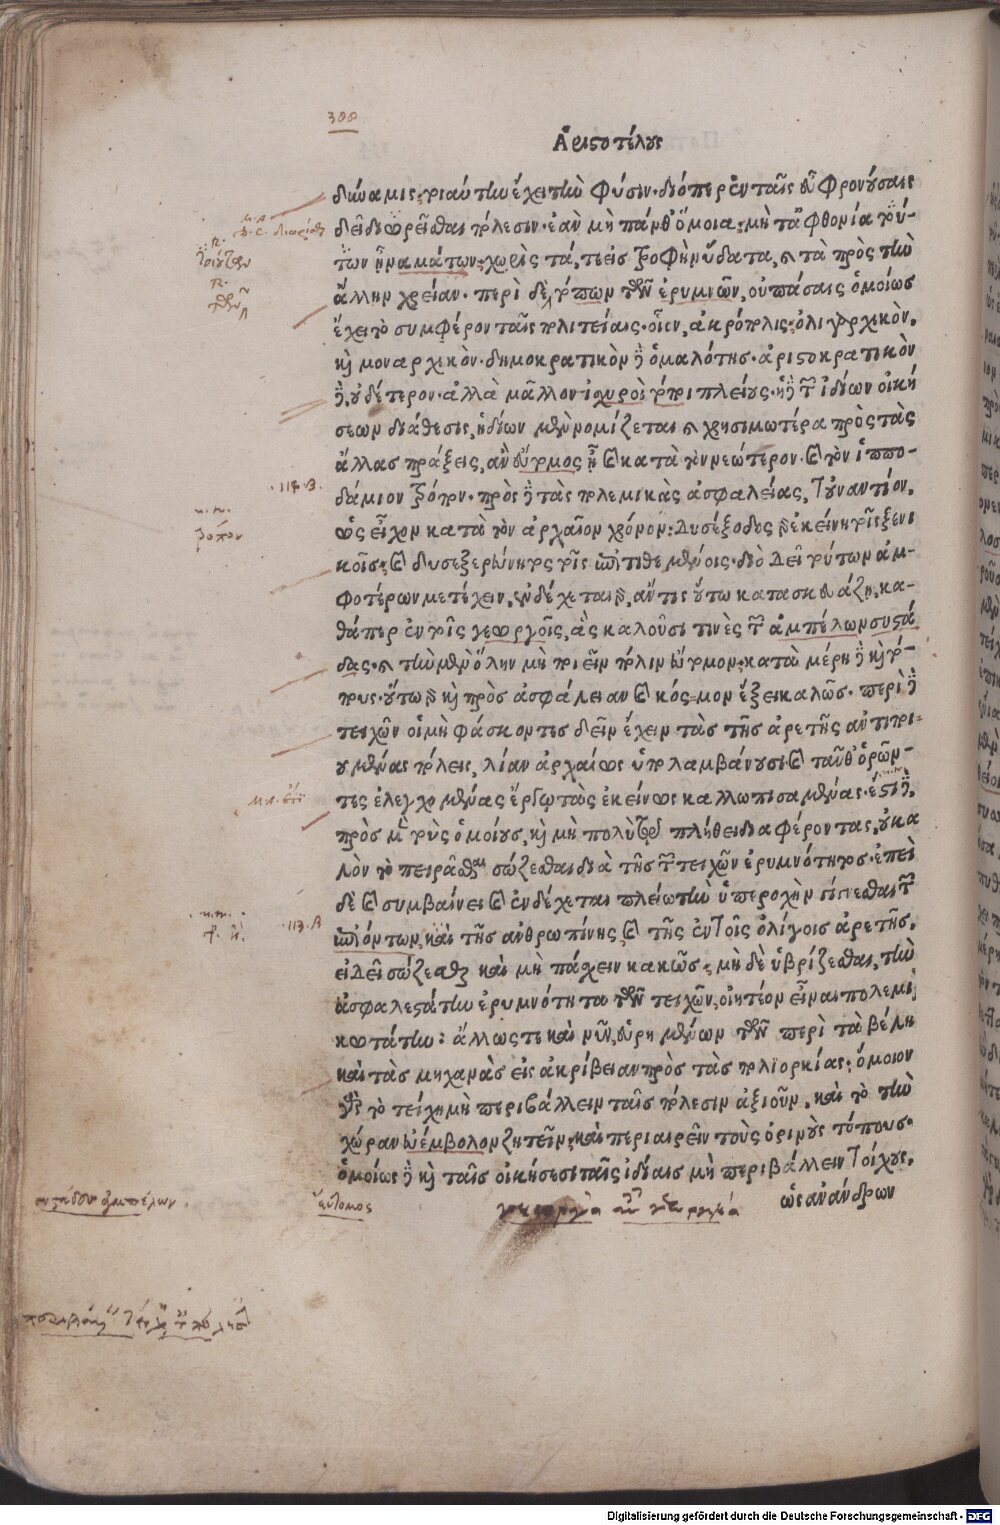 388
Ἀριστοτέλους
δύναμις, τοιαύτην ἔχει τὴν φύσιν. διόπερ ἐν ταῖς εὖ φρονούσαις
δεῖ διωρεῖσθαι πόλεσιν. ἐὰν μὴ πάνθ' ὅμοια, μὴ τ' ἀφθονία τού-
των ᾖ ναμάτων, χωρὶς τά, τε εἰς τροφὴν ὕδατα, καὶ τὰ πρὸς τὴν
ἄλλην χρείαν. περὶ δὲ τόπων τῶν ἐρυμνῶν, οὐ πάσαις ὁμοίως
ἔχει τὸ συμφέρον ταῖς πολιτείαις. οἷον, ἀκρόπολις, ὀλιγαρχικὸν,
καὶ μοναρχικὸν. δημοκρατικὸν δὲ ὁμαλότης. ἀριστοκρατικὸν
δὲ, οὐδέτερον. ἀλλὰ μᾶλλον ἰσχυροὶ τόποι πλείους. ἡ δὲ τῶν ἰδίων οἰκή
σεων διάθεσις, ἡδίων μὲν νομίζεται καὶ χρησιμωτέρα πρὸς τὰς
ἄλλας πράξεις, ἂν εὔτομος ᾖ καὶ κατὰ τὸν νεώτερον. καὶ τὸν ἱππο-
δάμιον τρόπον. πρὸς δὲ τὰς πολεμικὰς ἀσφαλείας, τοὐναντίον,
ὡς εἶχον κατὰ τὸν ἀρχαῖον χρόνον. Δυσέξοδος γὰρ ἐκείνη τοῖς ξενι
κοῖς, καὶ δυσεξερεύνητος τοῖς ἐπιτιθεμένοις. διὸ Δεῖ τούτων ἀμ-
φοτέρων μετέχειν, ἐνδέχεται γὰρ, ἄν τις οὕτω κατασκευάζῃ, κα-
θάπερ ἐν τοῖς γεωργοῖς, ἃς καλοῦσί τινὲς τῶν ἀμπέλων συστά
δας. καὶ τὴν μὲν ὅλην μὴ ποιεῖν πόλιν εὔτομον, κατὰ μέρη δὲ καὶ τό-
πους. οὕτω γὰρ καὶ πρὸς ἀσφάλειαν καὶ κόσμον ἕξει καλῶς. περὶ δὲ
τειχῶν οἱ μὴ φάσκοντες δεῖν ἔχειν τὰς τῆς ἀρετῆς ἀντιποι-
ουμένας πόλεις, λίαν ἀρχαίως ὑπολαμβάνουσι. καὶ ταῦθ' ὁρῶν-
τες ἐλεγχομένας ἔργῳ τὰς ἐκείνως καλλωπισαμένας. ἔστι δὲ,
πρὸς μὲν τοὺς ὁμοίους, καὶ μὴ πολὺ τῷ πλήθει διαφέροντας, οὐ κα
λὸν τὸ πειρᾶσθαι σώζεσθαι διὰ τῆς τῶν τειχῶν ἐρυμνότητος. ἐπεὶ
δὲ καὶ συμβαίνει καὶ ἐνδέχεται πλείω τὴν ὑπεροχὴν γίγνεσθαι τῶν
ἐπιόντων, καὶ τῆς ἀνθρωπίνης, καὶ τῆς ἐν τοῖς ὀλίγοις ἀρετῆς,
εἰ Δεῖ σώζεσθαι καὶ μὴ πάσχειν κακῶς, μὴ δὲ ὑβρίζεσθαι, τὴν
ἀσφαλεστάτην ἐρυμνότητα τῶν τειχῶν, οἰητέον εἶναι πολεμι
κωτάτην: ἄλλως τε καὶ νῦν, εὑρημένων τῶν περὶ τὰ βέλη
καὶ τὰς μηχανὰς εἰς ἀκρίβειαν πρὸς τὰς πολιορκίας. ὅμοιον
γὰρ τὸ τείχη μὴ περιβάλλειν ταῖς πόλεσιν ἀξιοῦν, καὶ τὸ τὴν
χώραν εὐέμβολον ζητεῖν, καὶ περιαιρεῖν τοὺς ὀρινοὺς τόπους.
ὁμοίως δὲ καὶ ταῖς οἰκήσεσι ταῖς ἰδίαις μὴ περιβάλλειν τοίχους,
ὡς ἀνάνδρων
114. B.
113. A
εὔτομος